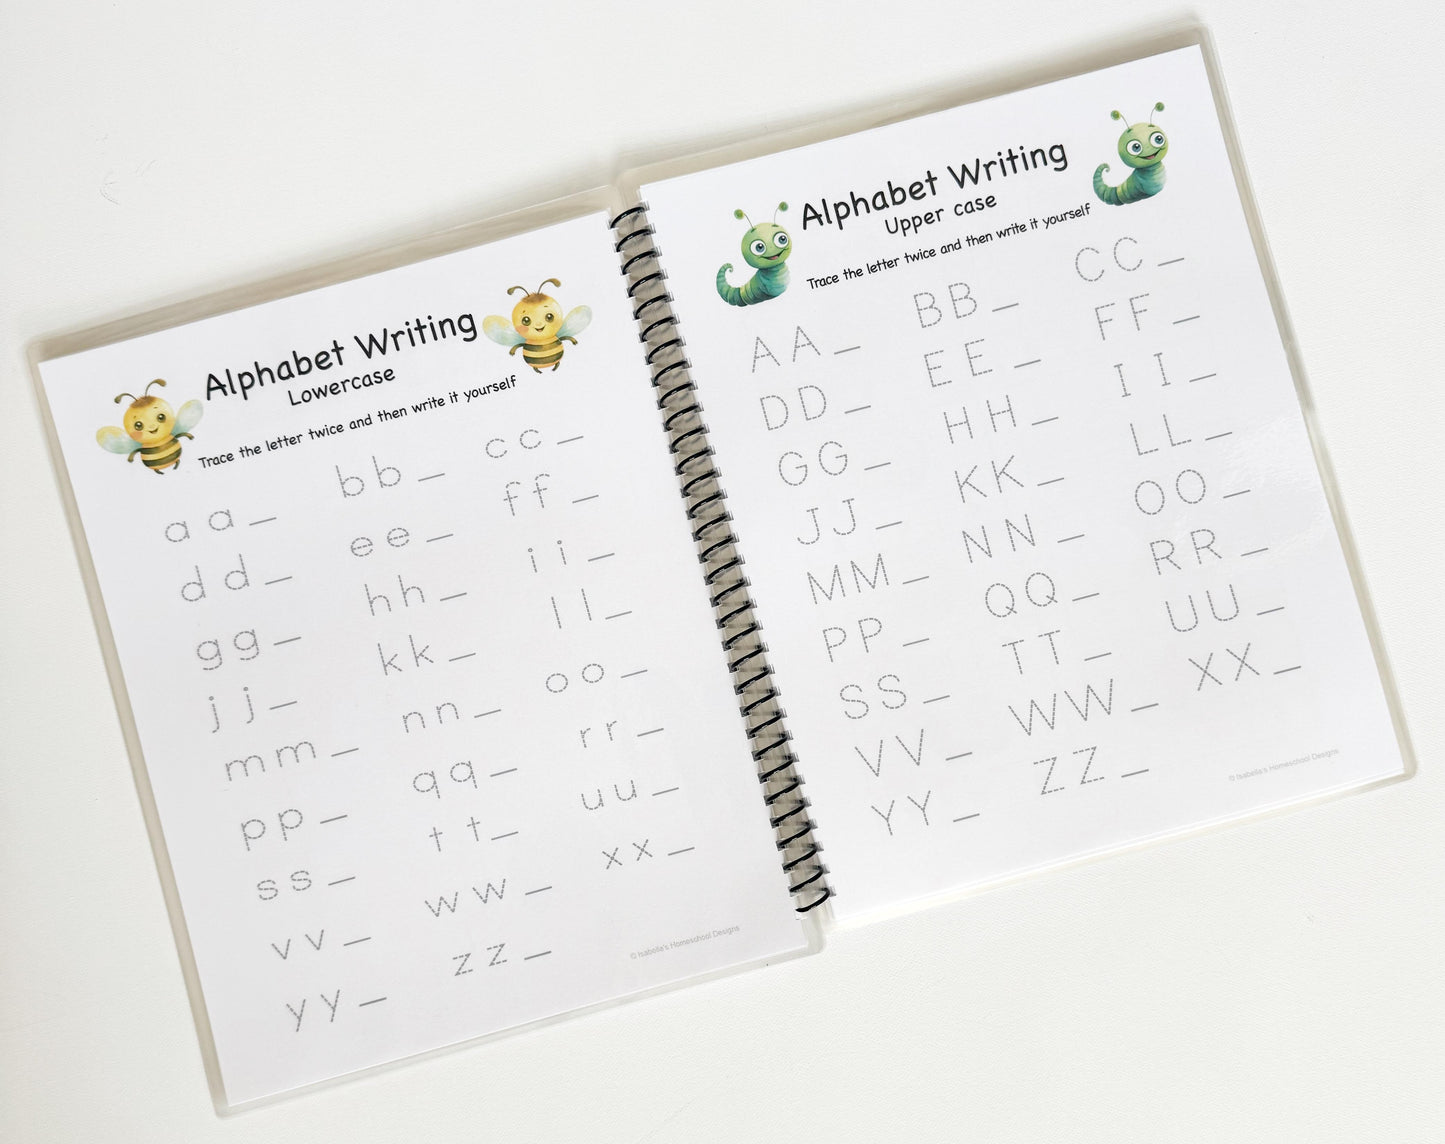 Alphabet Writing
Lowercase
Trace the letter twice and then write it yourself
a a _ b b _ c c _
d d _ e e _ f f _
g g _ h h _ i i _
j j _ k k _ l l _
m m _ n n _ o o _
p p _ q q _ r r _
s s _ t t _ u u _
v v _ w w _ x x _
y y _ z z _
© Isabella's Homeschool Designs
Alphabet Writing
Upper case
Trace the letter twice and then write it yourself
A A _ B B _ C C _
D D _ E E _ F F _
G G _ H H _ I I _
J J _ K K _ L L _
M M _ N N _ O O _
P P _ Q Q _ R R _
S S _ T T _ U U _
V V _ W W _ X X _
Y Y _ Z Z _
© Isabella's Homeschool Designs